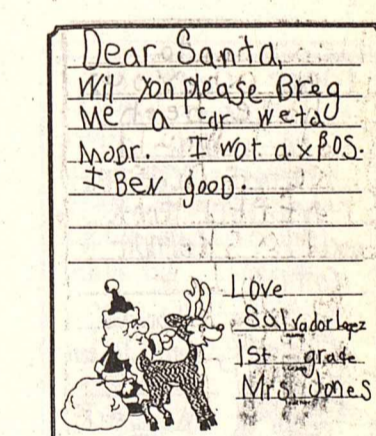 Dear Santa,
Wil you please Breg
Me a car weta
Modr. I wot a xBOS.
I BeN good.
Love
Salvador Lopez
1st grade
Mrs. Jones